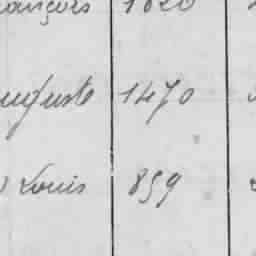 ançois 1820
uguste 1470
Louis 859